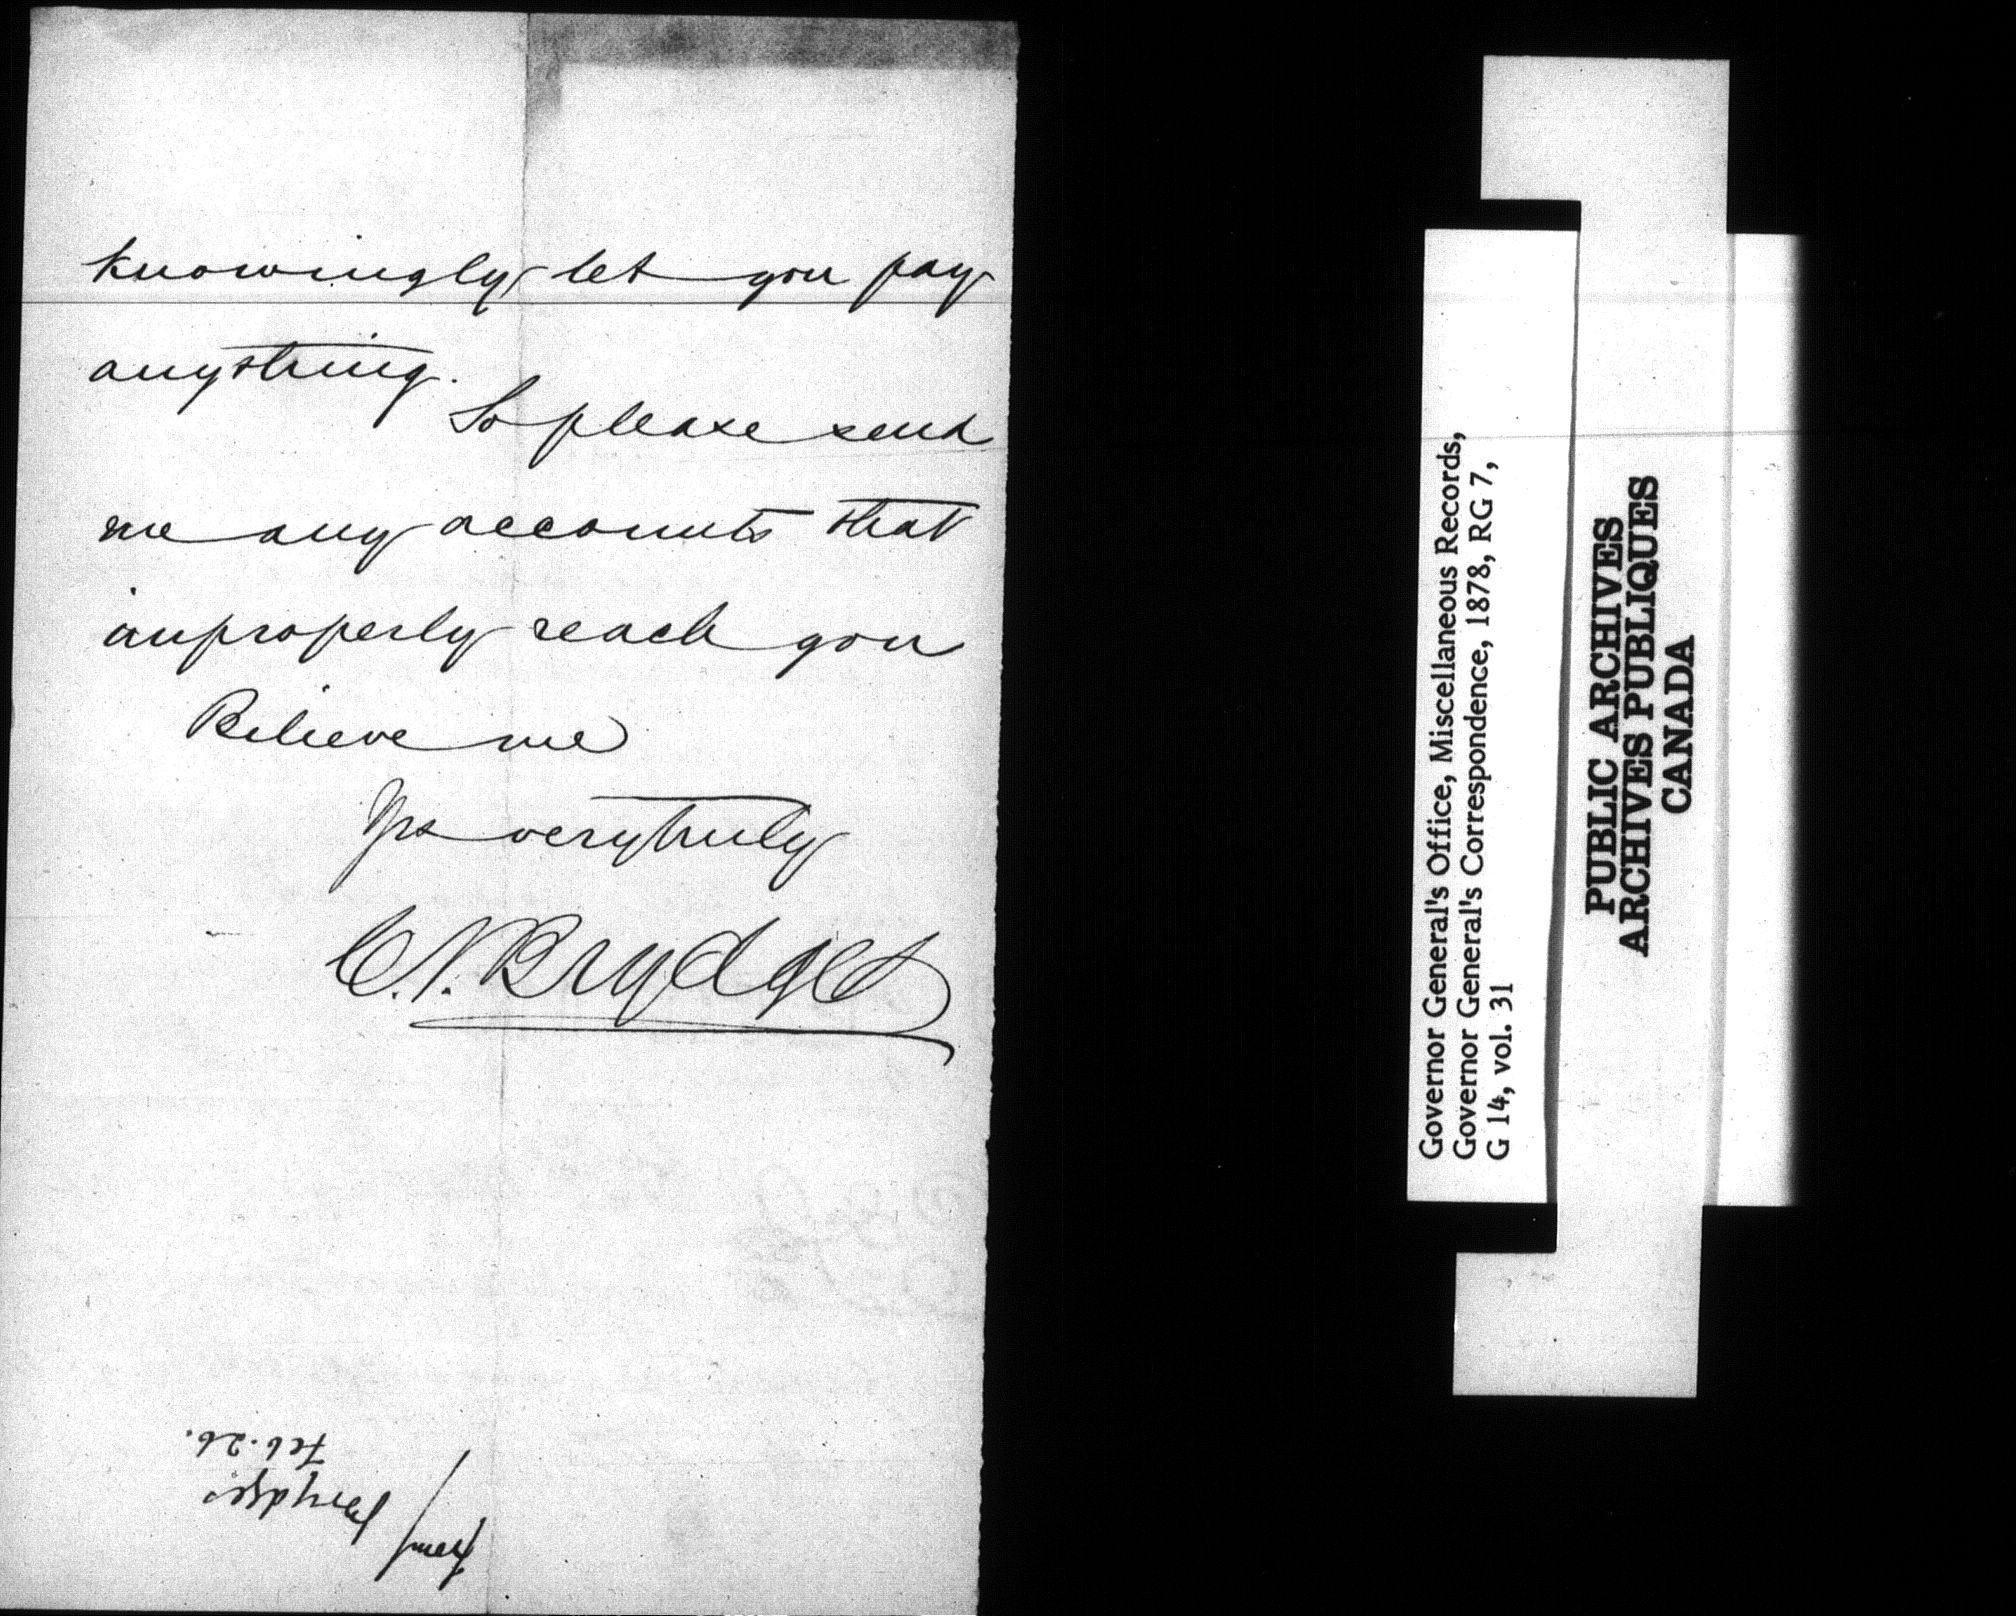 knowingly let you pay
anything.
So please send
me any accounts that
improperly reach you
Believe me
Yrs very truly
C. J. Brydges
from/
Brydges
Feb. 26.
Governor General's Office, Miscellaneous Records,
Governor General's Correspondence, 1878, RG 7,
G 14, vol. 31
PUBLIC ARCHIVES
ARCHIVES PUBLIQUES
CANADA